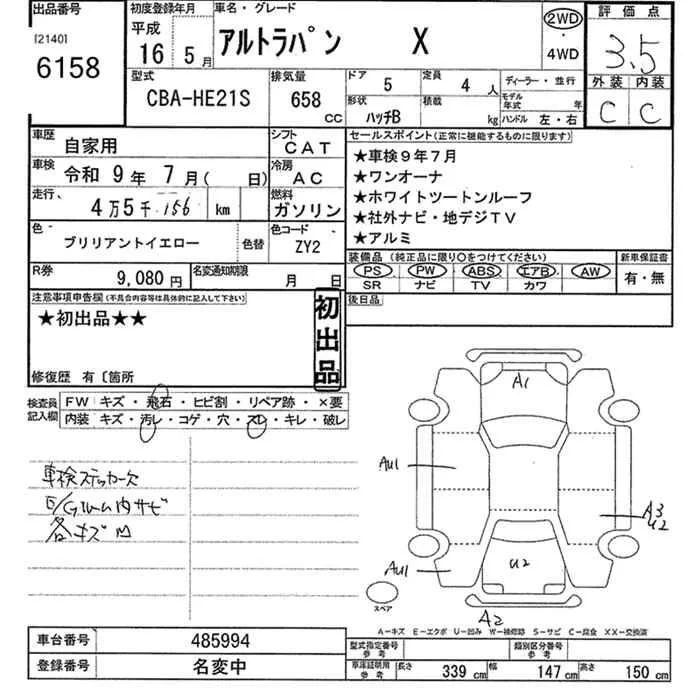 出品番号 初度登録年月 車名・グレード 評価点
[2140] 平成 アルトラパン X 2WD 3.5
6158 16年 5月 4WD
型式 排気量 ドア 定員 ディーラー・並行 外装 内装
CBA-HE21S 658 CC 5 4人 モデル年式 年 C C
形状 積載
ハッチB kg ハンドル 左・右
車歴 自家用 シフト CAT セールスポイント(正常に機能するものに限ります)
車検 令和 9年 7月( 日) 冷房 AC ★車検9年7月
★ワンオーナ
走行、 4万5千156 km 燃料 ガソリン ★ホワイトツートンルーフ
★社外ナビ・地デジTV
色 ブリリアントイエロー 色替 色コード ZY2 ★アルミ
装備品 (純正品に限り〇をつけてください) 新車保証書
R券 9,080円 名変通知期限 月 日 PS PW ABS エアB AW 有・無
SR ナビ TV カワ
注意事項申告欄(不具合内容等は具体的に記入して下さい) 後日品
★初出品★★ 初出品
修復歴 有〔箇所
検査員記入欄 FW キズ・飛石・ヒビ割・リペア跡・×要
内装 キズ・汚レ・コゲ・穴・スレ・キレ・破レ
車検ステッカー欠
E/Gルーム内サビ
各キズ凹
A1
AU1
A3
U2
AU1
U2
スペア
A2
A-キズ E-エクボ U-凹み W-補修跡 S-サビ C-腐食 XX-交換済
車台番号 485994 型式指定番号 参考 類別区分番号 参考
登録番号 名変中 車庫証明用 参考 長さ 339 cm 幅 147 cm 高さ 150 cm